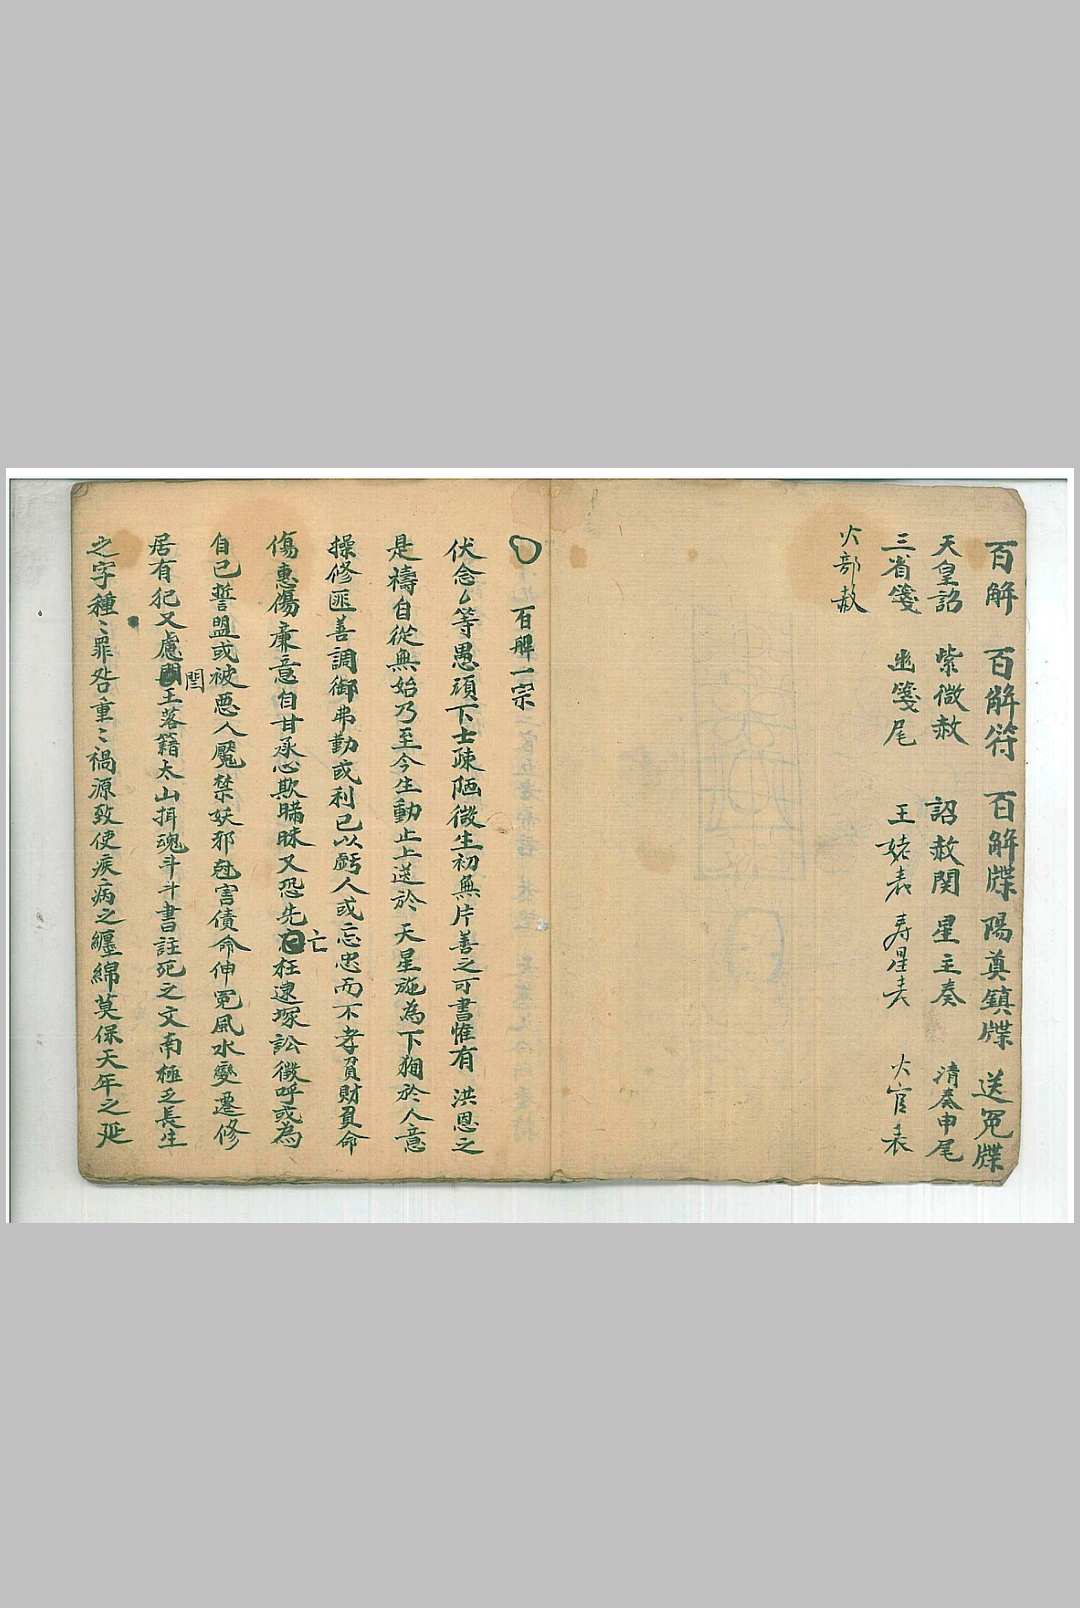 百解 百解符 百解牒 陽奠鎮牒 送冤牒
天皇詔 紫微赦 詔赦関 星主奏 清奏申尾
三省箋 幽箋尾 王姥表 寿星表 火官表
火部赦
百解一宗
伏念厶等愚頑下士疎陋微生初無片善之可書惟有 洪恩之
是禱自從無始乃至今生動止上送於 天星施為下狥於人意
操修匪善調御弗勤或利已以虧人或忘忠而不孝貧財負命
傷惠傷廉意自甘承心欺瞞昧又恐先亡在逮塚訟徵呼或為
自已誓盟或被惡人魘禁妖邪尅害債命伸冤風水變遷修
居有犯又慮閏王落籍太山拘魂斗斗書註死之文南極乏長生
之字種〻罪咎重〻禍源致使疾病之纏綿莫保天年之延